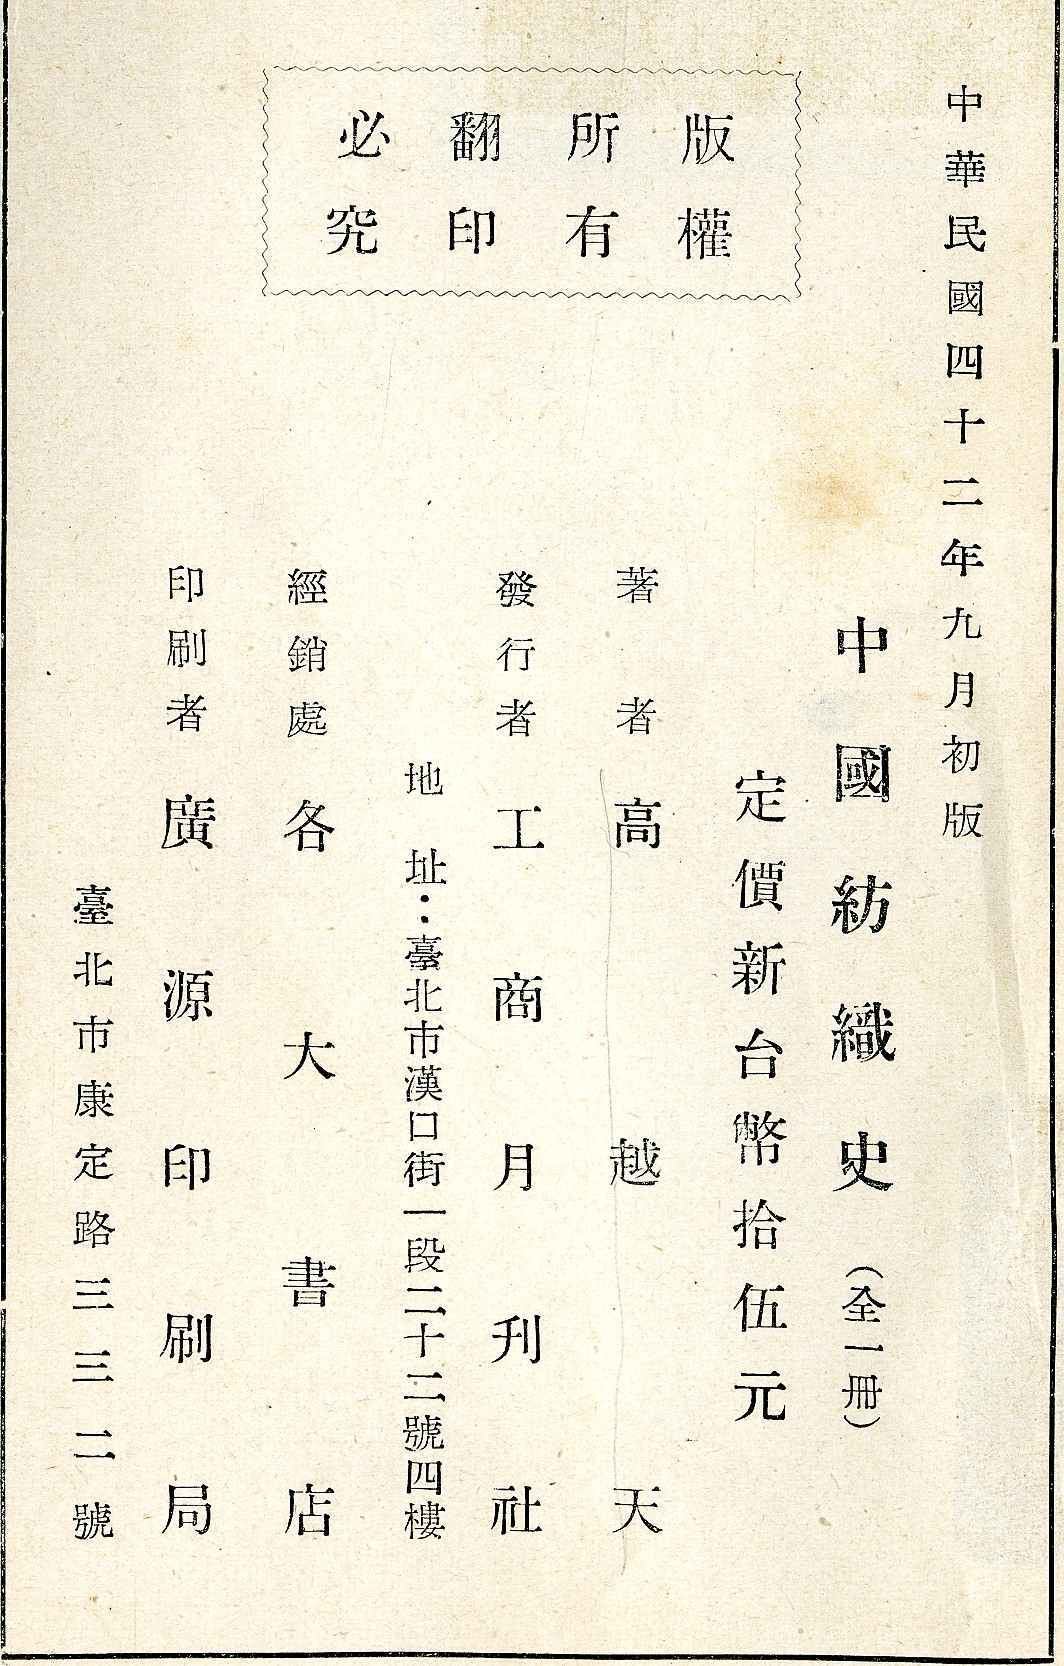 中華民國四十二年九月初版
中國紡織史（全一冊）
定價新台幣拾伍元
版權
所有
翻印
必究
著者高越天
發行者工商月刊社
地址：臺北市漢口街一段二十二號四樓
經銷處各大書店
印刷者廣源印刷局
臺北市康定路三三二號